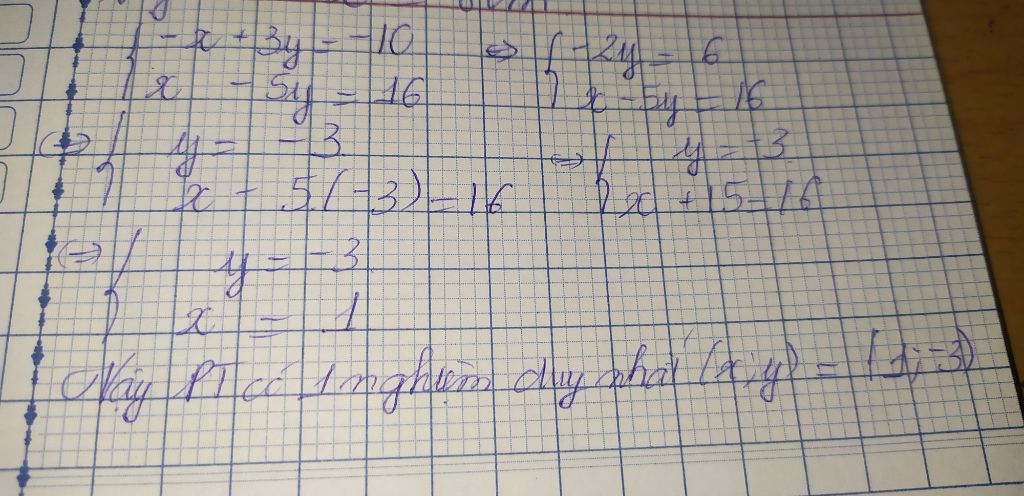 { -x + 3y = -10 ⇔ { -2y = 6
x - 5y = 16 x - 5y = 16
⇔ { y = -3 ⇔ { y = -3
x - 5.(-3) = 16 x + 15 = 16
⇔ { y = -3
x = 1
Vậy PT có 1 nghiệm duy nhất (x;y) = (1;-3)